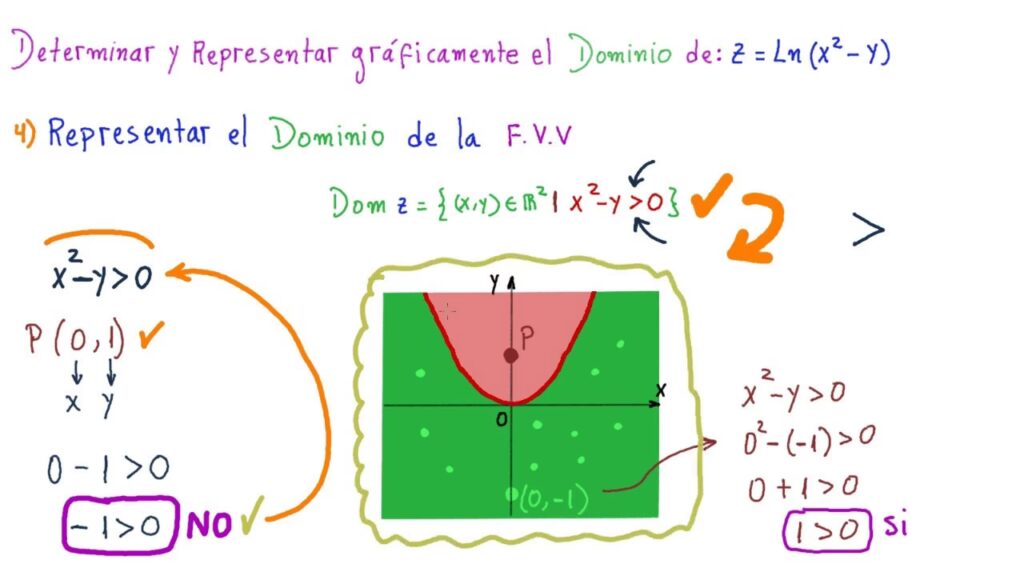 Determinar y Representar gráficamente el Dominio de: z = Ln (x² - y)
4) Representar el Dominio de la F.V.V
Dom z = {(x,y) ∈ ℝ² | x² - y > 0}
>
x² - y > 0
P (0, 1)
x y
0 - 1 > 0
- 1 > 0 NO
y
P
x
0
(0, -1)
x² - y > 0
0² - (-1) > 0
0 + 1 > 0
1 > 0 Si